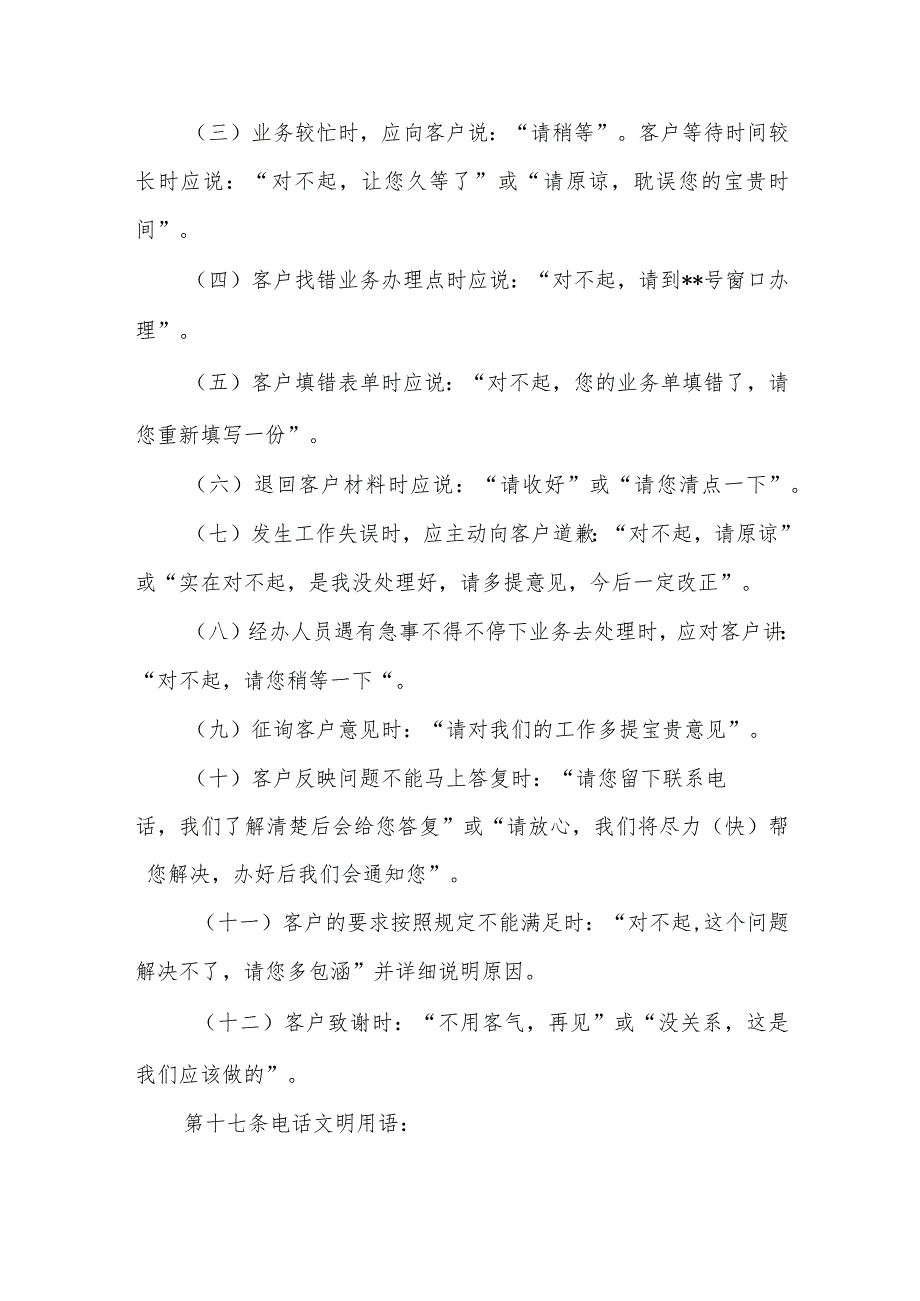 （三）业务较忙时，应向客户说：“请稍等”。客户等待时间较
长时应说：“对不起，让您久等了”或“请原谅，耽误您的宝贵时
间”。
（四）客户找错业务办理点时应说：“对不起，请到**号窗口办
理”。
（五）客户填错表单时应说：“对不起，您的业务单填错了，请
您重新填写一份”。
（六）退回客户材料时应说：“请收好”或“请您清点一下”。
（七）发生工作失误时，应主动向客户道歉：“对不起，请原谅”
或“实在对不起，是我没处理好，请多提意见，今后一定改正”。
（八）经办人员遇有急事不得不停下业务去处理时，应对客户讲：
“对不起，请您稍等一下“。
（九）征询客户意见时：“请对我们的工作多提宝贵意见”。
（十）客户反映问题不能马上答复时：“请您留下联系电
话，我们了解清楚后会给您答复”或“请放心，我们将尽力（快）帮
您解决，办好后我们会通知您”。
（十一）客户的要求按照规定不能满足时：“对不起,这个问题
解决不了，请您多包涵”并详细说明原因。
（十二）客户致谢时：“不用客气，再见”或“没关系，这是
我们应该做的”。
第十七条电话文明用语：